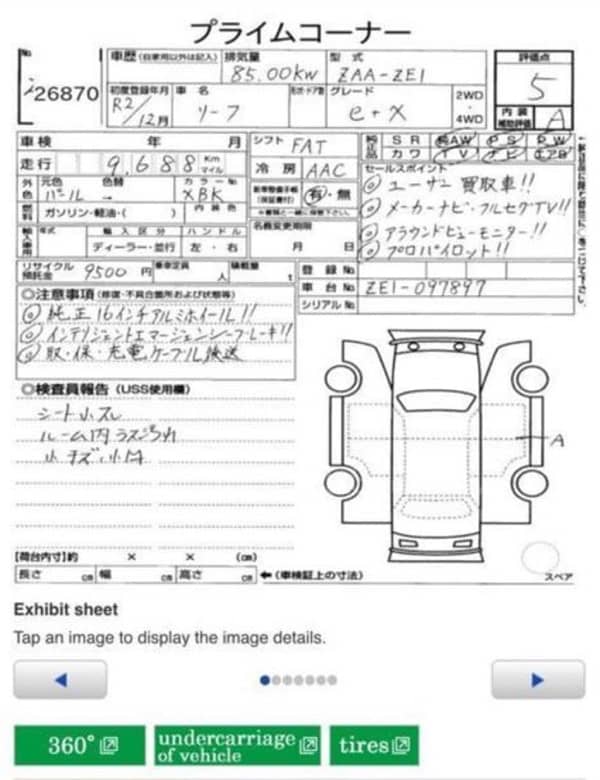 プライムコーナー
No
26870
車歴 (自家用以外は記入) 排気量 型式 評価点
85.00kw ZAA-ZE1 5
初度登録年月 車名 グレード 2WD
R2/12月 リーフ e+X 4WD
内装補助評価 A
車検 年 月 シフト FAT 純正品 SR AW PS PW
カワ TV ナビ エアB
走行 9,688 Km マイル 冷房 AAC
セールスポイント
外色 元色 色替 カラーNo 有・無
パール → XBK
◎ユーザー買取車!!
◎メーカーナビ・フルセグTV!!
◎アラウンドビューモニター!!
◎プロパイロット!!
燃料 ガソリン・軽油・( ) 内装色
輸入車用 年式 輸入区分 ハンドル 名義変更期限
ディーラー・並行 左・右 月 日
リサイクル預託金 9500円 乗車定員 人 積載量 t 登録No
車台No ZE1-097897
シリアルNo
◎注意事項 (修復・不具合箇所および状態等)
◎純正16インチアルミホイール!!
◎インテリジェントエマージェンシーブレーキ!!
◎取・保・充電ケーブル後送
◎検査員報告 (USS使用欄)
シート小スレ
ルーム内ラゲ汚れ
小キズ・小凹
A
【荷台内寸】約 × × (cm)
長さ cm 幅 cm 高さ cm ←(車検証上の寸法)
スペア
Exhibit sheet
Tap an image to display the image details.
360°
undercarriage of vehicle
tires